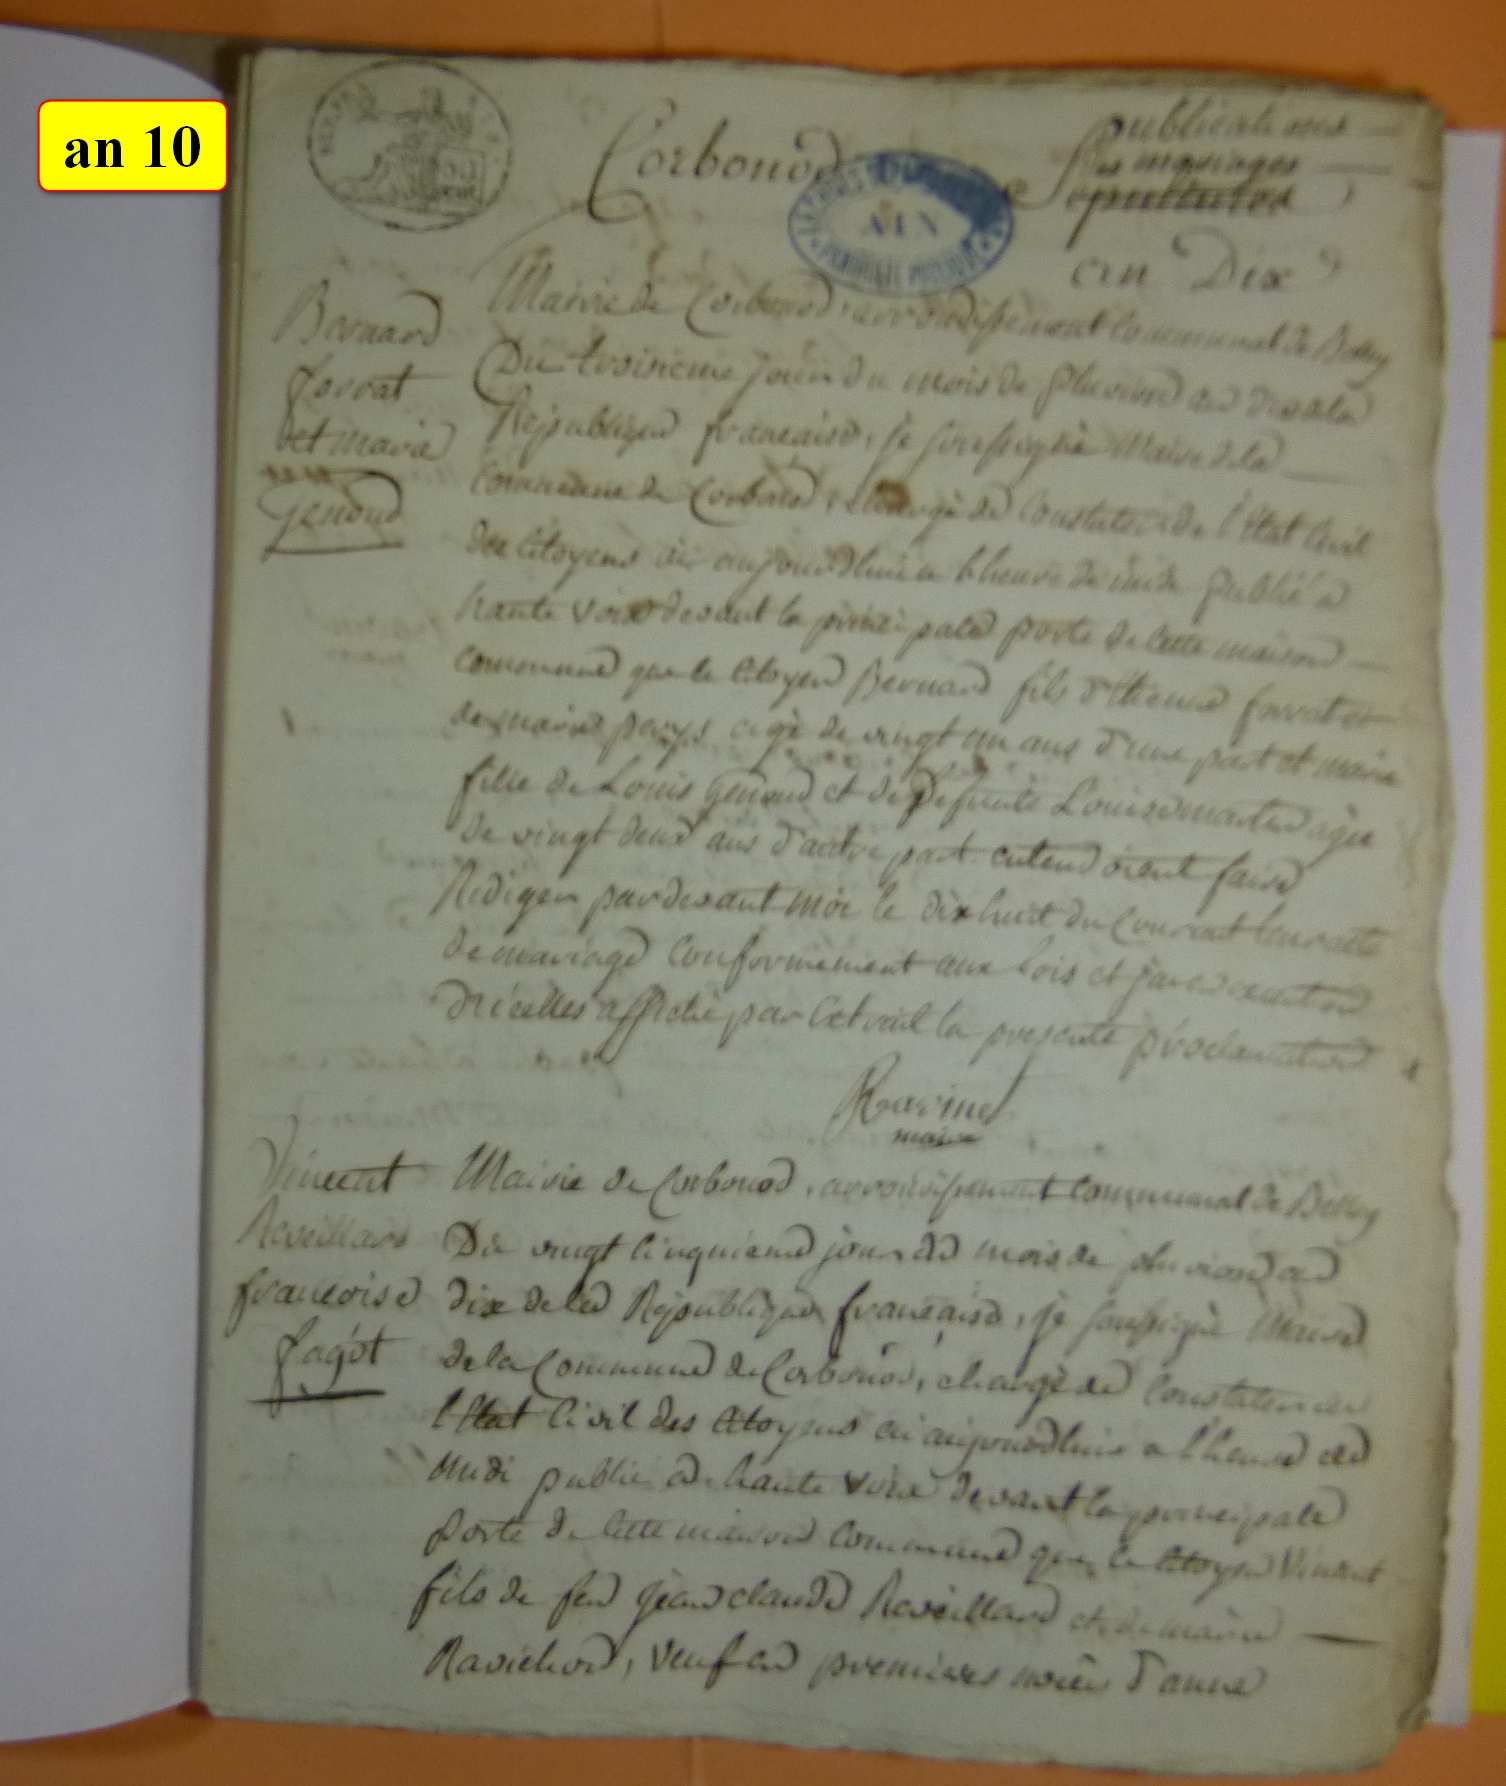 an 10
Corbonod
publications
des mariages
sepultures
an Dix
AIN
Bernard
forrat
et marie
Genoud
Mairie de Corbonod, arrondissement Communal de Belley
Du troisieme jour du mois de pluviose an dix de la
Republique francaise, je soussigné Maire de la
Commune de Corbonod, chargé de Constater de l'Etat Civil
des Citoyens ai aujourdhui a lheure de midi publié a
haute voix devant la principale porte de cette maison
commune que le Citoyen Bernard fils d'Etienne forrat et
de marie pays agé de vingt un ans d'une part et marie
fille de Louis Genoud et de defunte Louise martin agée
de vingt deux ans d'autre part entendoient faire
Rediger pardevant moi le dix huit du Courant leur acte
de mariage Conformement aux lois et j'ai en execution
d'icelles affiché par Extrait la presente proclamation
Ravinet
maire
Vincent
Reveillard
francoise
fagot
Mairie de Corbonod, arrondissement Communal de Belley
Du vingt Cinquieme jour du mois de pluviose an
dix de la Republique francaise, je soussigné Maire
de la Commune de Corbonod, chargé de Constater
l'Etat Civil des Citoyens ai aujourdhui a lheure de
midi publié a haute voix devant la principale
porte de Cette maison Commune que le Citoyen Vincent
fils de feu Jean claude Reveillard et de marie
Ravichon, veuf en premieres noces d'anne